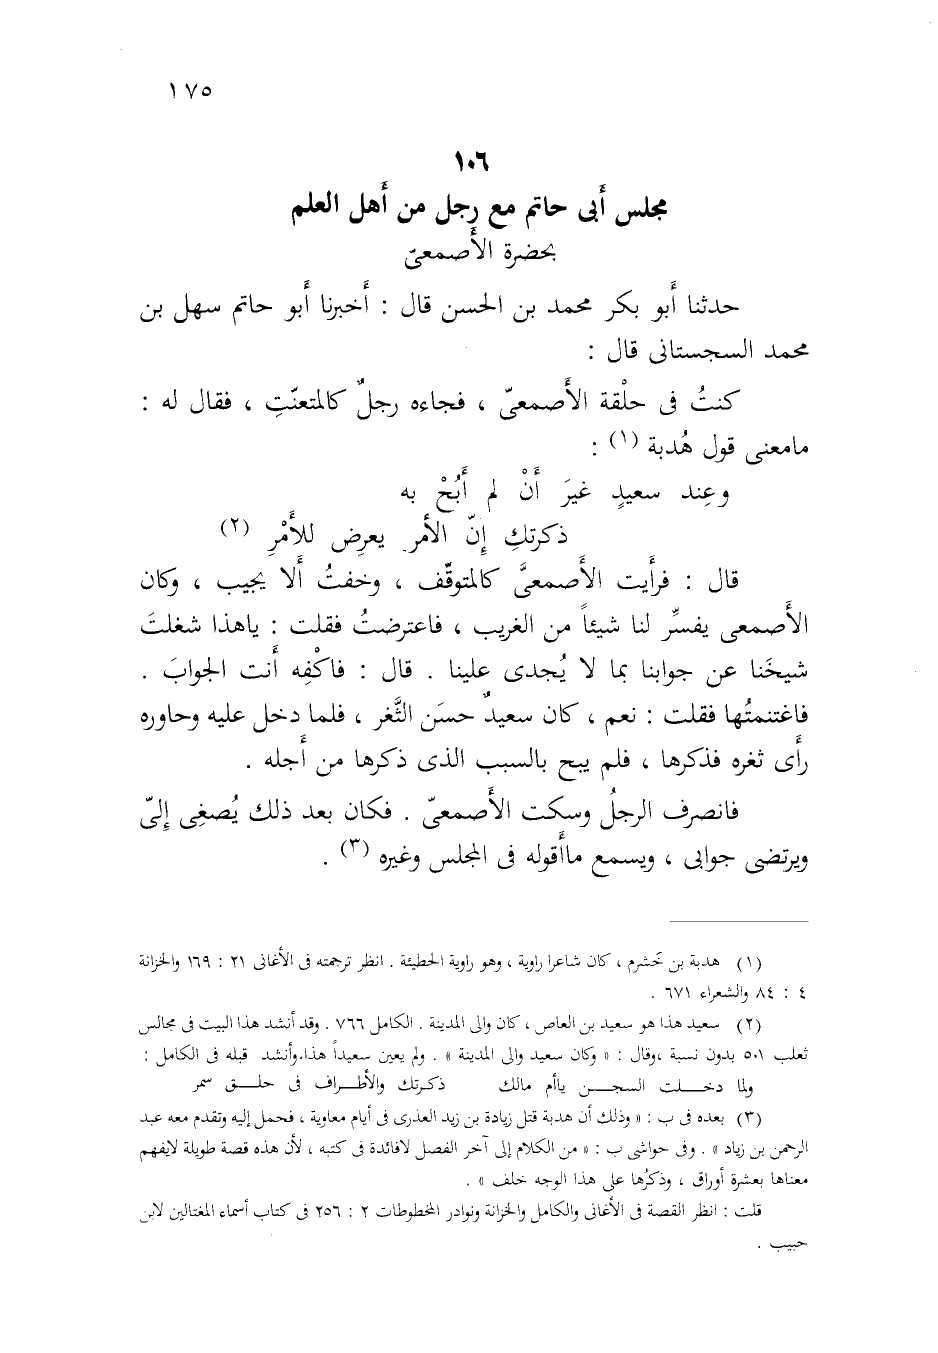 ١٧٥
١٠٦
مجلس أبى حاتم مع رجل من أهل العلم
بحضرة الأصمعىّ
حدثنا أبو بكر محمد بن الحسن قال : أخبرنا أبو حاتم سهل بن
محمد السجستانى قال :
كنتُ فى حلْقة الأصمعىّ ، فجاءه رجلٌ كالمتعنّتِ ، فقال له :
مامعنى قول هُدبة (١) :
وعِند سعيدٍ غيرَ أَنْ لم أَبُحْ به
ذكرتكِ إِنّ الأمر يعرِض للأَمْرِ (٢)
قال : فرأيت الأصمعىَّ كالمتوقّف ، وخفتُ ألا يجيب ، وكان
الأصمعى يفسِّر لنا شيئاً من الغريب ، فاعترضتُ فقلت : ياهذا شغلتَ
شيخَنا عن جوابنا بما لا يُجدى علينا . قال : فاكْفِه أنت الجوابَ .
فاغتنمتُها فقلت : نعم ، كان سعيدٌ حسَن الثَّغر ، فلما دخل عليه وحاوره
رأى ثغره فذكرها ، فلم يبح بالسبب الذى ذكرها من أجله .
فانصرف الرجلُ وسكت الأصمعىّ . فكان بعد ذلك يُصغِى إلىّ
ويرتضى جوابى ، ويسمع ماأقوله فى المجلس وغيره (٣) .
(١) هدبة بن خَشرم ، كان شاعرا راوية ، وهو راوية الحطيئة . انظر ترجمته فى الأغانى ٢١ : ١٦٩ والخزانة
٤ : ٨٤ والشعراء ٦٧١ .
(٢) سعيد هذا هو سعيد بن العاص ، كان والى المدينة . الكامل ٧٦٦ . وقد أنشد هذا البيت فى مجالس
ثعلب ٥٠١ بدون نسبة ،وقال : « وكان سعيد والى المدينة » . ولم يعين سعيداً هذا.وأنشد قبله فى الكامل :
ولما دخــلت السجــن ياأم مالك ذكرتك والأطــراف فى حلــق سمر
(٣) بعده فى ب : « وذلك أن هدبة قتل زيادة بن زيد العذرى فى أيام معاوية ، فحمل إليه وتقدم معه عبد
الرحمن بن زياد » . وفى حواشى ب : « من الكلام إلى آخر الفصل لافائدة فى كتبه ، لأن هذه قصة طويلة لايفهم
معناها بعشرة أوراق ، وذكرُها على هذا الوجه خلف » .
قلت : انظر القصة فى الأغانى والكامل والخزانة ونوادر المخطوطات ٢ : ٢٥٦ فى كتاب أسماء المغتالين لابن
حبيب .